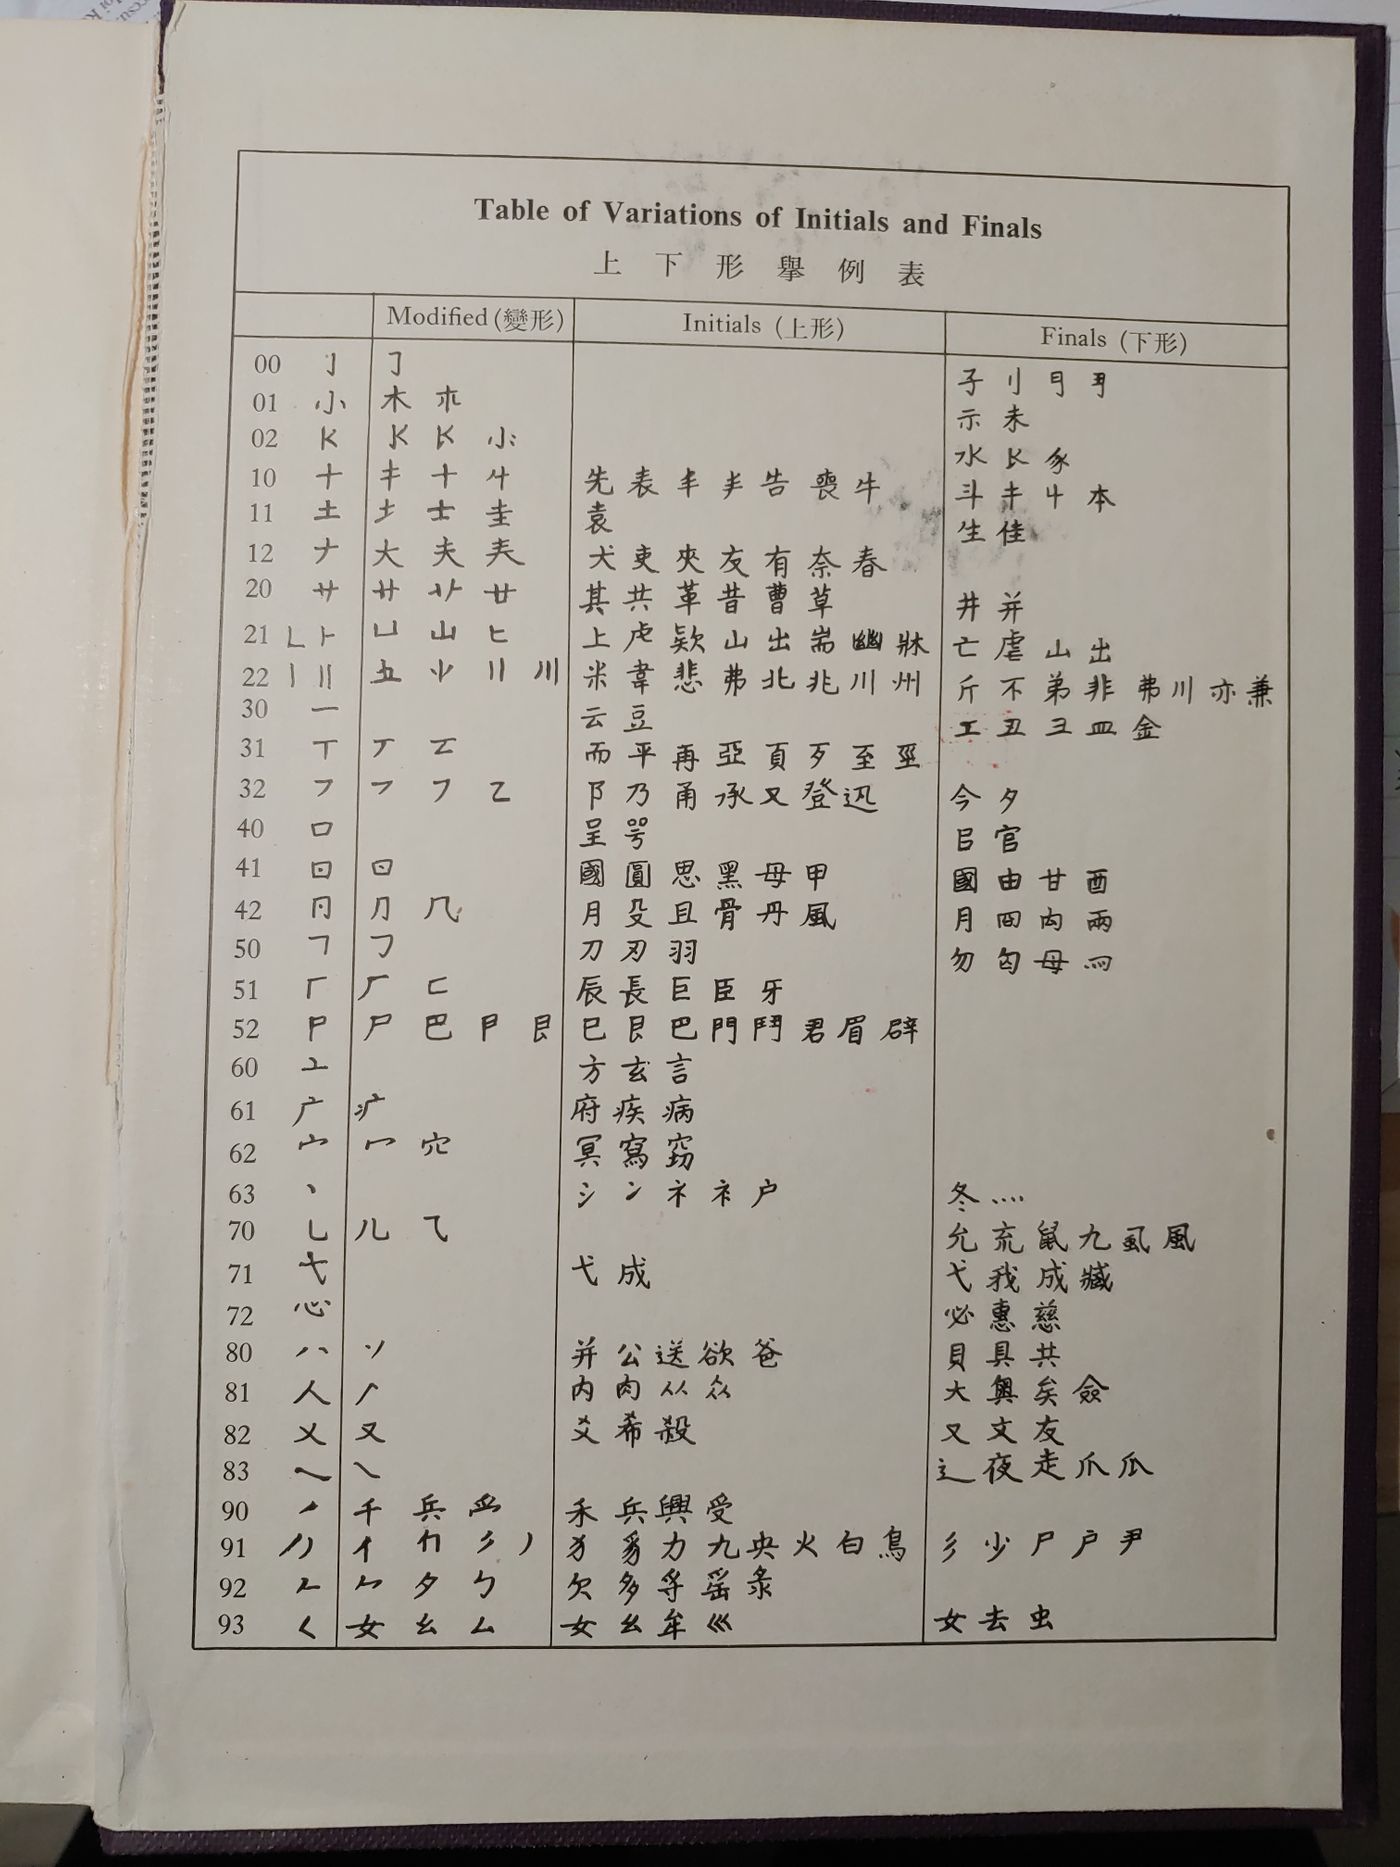 Table of Variations of Initials and Finals
上下形舉例表
Modified (變形) Initials (上形) Finals (下形)
00 亅 ㇆ 子 刂
01 小 木 朩 示 未
02 水 豕
10 十 キ 十 先 表 告 喪 牛 斗 本
11 土 士 圭 袁 生 佳
12 ナ 大 夫 犬 吏 夾 友 有 奈 春
20 廿 其 共 革 昔 曹 草 井 并
21 ㄴ ⺊ 凵 山 匕 上 虍 山 出 耑 幽 亡 虐 山 出
22 丨 〢 川 米 韋 悲 弗 北 兆 川 州 斤 不 弟 非 弗 川 亦 兼
30 一 云 豆 工 丑 彐 皿 金
31 丅 丆 而 平 再 亞 頁 歹 至 巠
32 乛 ㇇ 乙 阝 乃 甬 承 又 登 迅 今 夕
40 口 呈 咢 㠯 官
41 日 曰 國 圓 思 黑 母 甲 國 由 甘 酉
42 冂 几 月 殳 且 骨 丹 風 月 内 兩
50 ㇕ ㇆ 刀 刃 羽 勿 匃 母
51 厂 匚 辰 長 巨 臣 牙
52 尸 巴 巳 艮 巴 門 鬥 君 眉 辟
60 亠 方 玄 言
61 广 疒 府 疾 病
62 宀 冖 穴 冥 寫 窈
63 丶 氵 冫 礻 衤 户 冬 灬
70 乚 儿 ㇈ 允 㐬 鼠 九 虱 風
71 七 弋 成 弋 我 成 臧
72 心 必 惠 慈
80 八 丷 并 公 送 欲 爸 貝 具 共
81 人 丿 内 肉 从 众 大 奧 矣 僉
82 乂 又 爻 希 殺 又 文 友
83 乀 ㇏ 辶 夜 走 爪 瓜
90 千 兵 禾 兵 興 受
91 丿 亻 彡 丿 犭 豸 力 九 央 火 白 鳥 彡 少 尸 户 尹
92 𠂉 夕 勹 欠 多 爭 䍃 彖
93 ㄑ 女 幺 厶 女 幺 牟 巛 女 去 虫